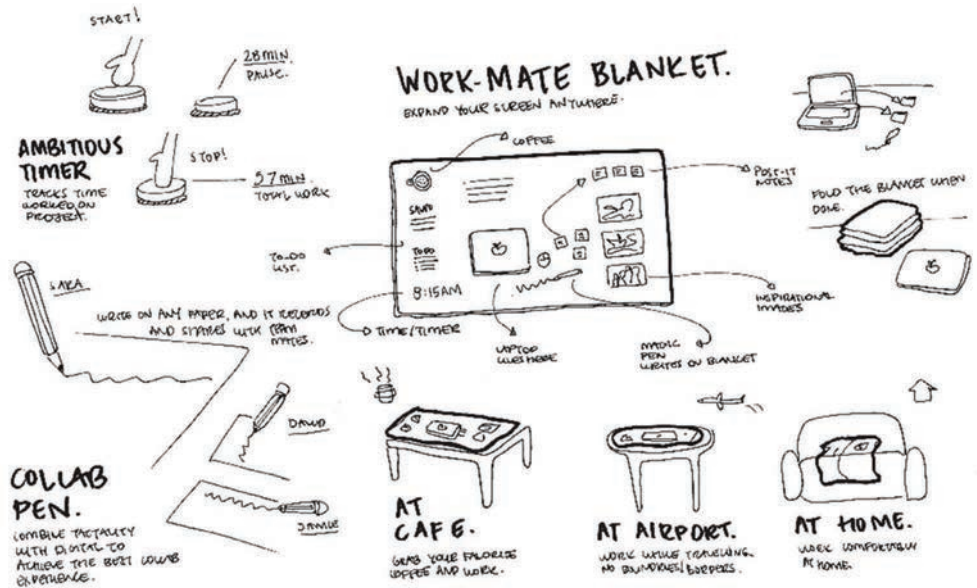 START!
28 MIN.
PAUSE.
AMBITIOUS
TIMER
TRACKS TIME
WORKED ON
PROJECT.
STOP!
57 MIN.
TOTAL WORK
WORK-MATE BLANKET.
EXPAND YOUR SCREEN ANYWHERE.
COFFEE
POST-IT
NOTES
TODO
8:15AM
TO-DO
LIST.
TIME/TIMER
LAPTOP
GOES HERE
MAGIC
PEN
WRITES ON BLANKET
INSPIRATIONAL
IMAGES
FOLD THE BLANKET WHEN
DONE.
SAKA
WRITE ON ANY PAPER, AND IT RECORDS
AND SHARES WITH TEAM
MATES.
DAVID
JAMIE
COLLAB
PEN.
COMBINE TACTALITY
WITH DIGITAL TO
ACHIEVE THE BEST COLLAB
EXPERIENCE.
AT
CAFE.
GRAB YOUR FAVORITE
COFFEE AND WORK.
AT AIRPORT.
WORK WHILE TRAVELING.
NO BOUNDRIES/BORDERS.
AT HOME.
WORK COMFORTABLY
AT HOME.